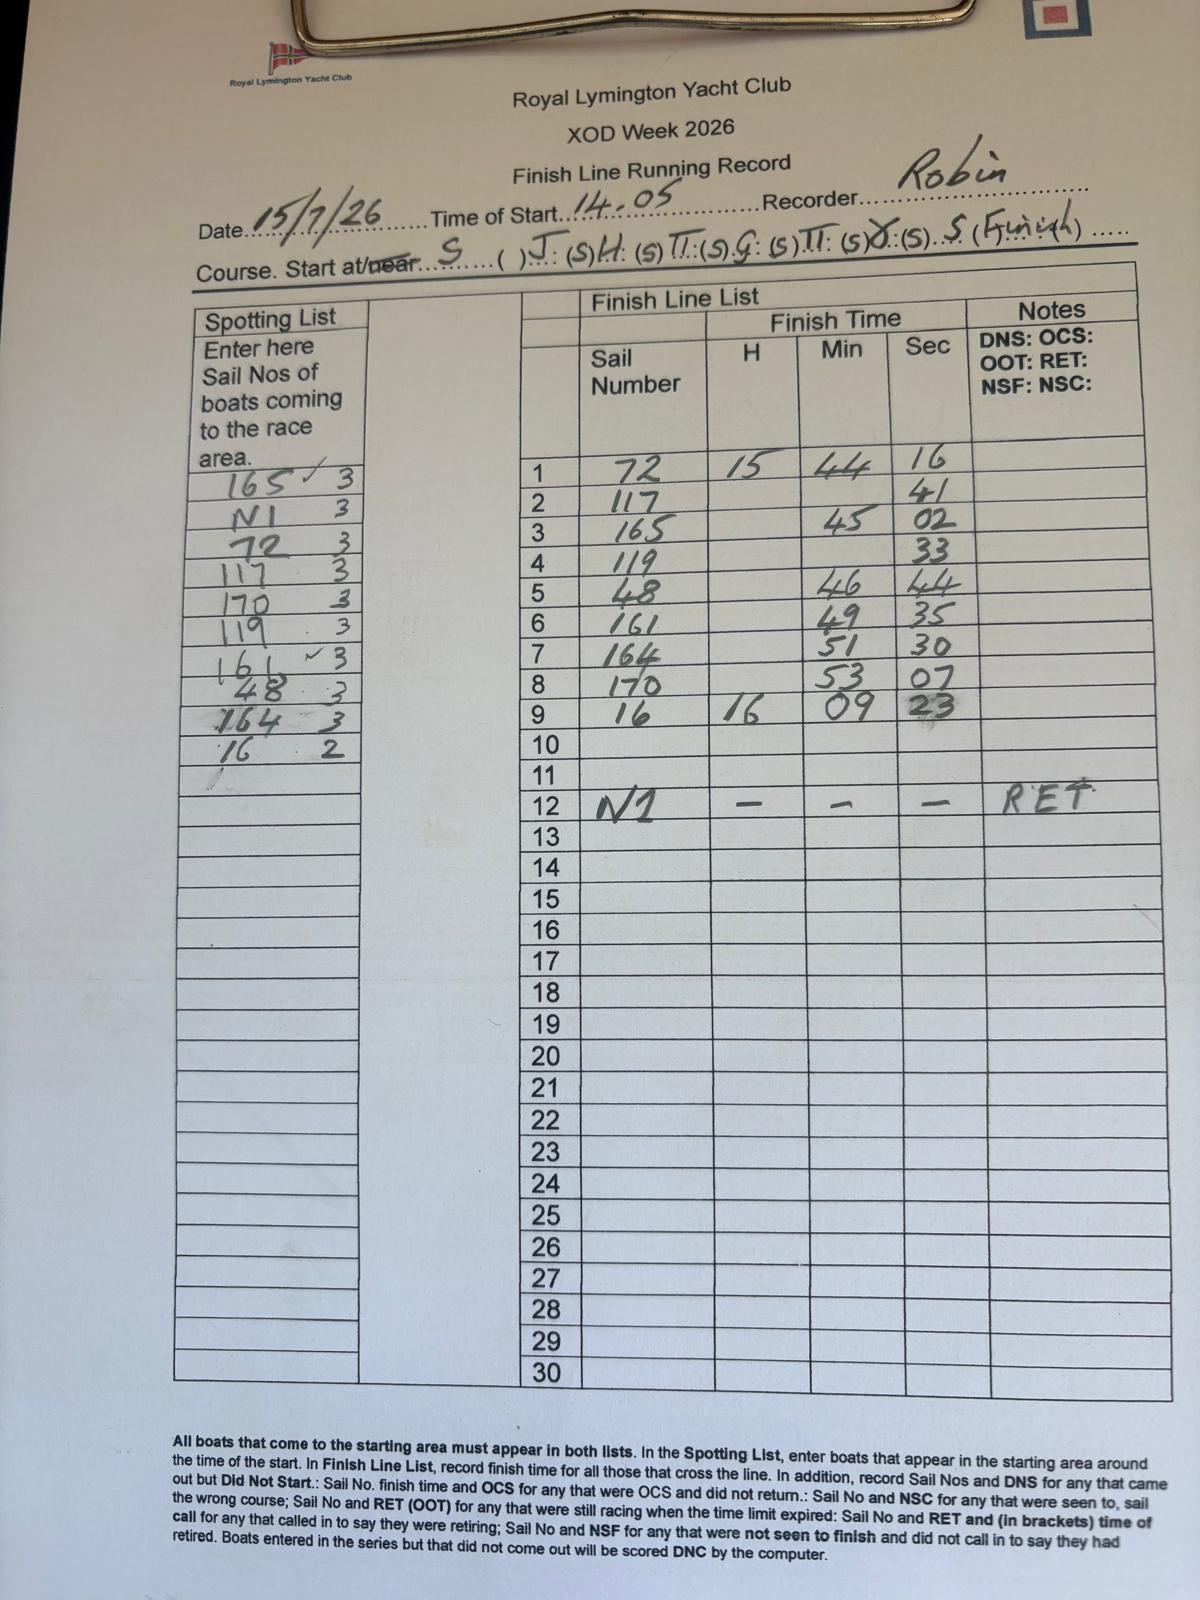 Royal Lymington Yacht Club
Royal Lymington Yacht Club
XOD Week 2026
Finish Line Running Record
Date 15/7/26 Time of Start 14.05 Recorder Robin
Course. Start at/near S ( ) J: (S) H: (S) π: (S) G: (S) π: (S) (S) S (Finish)
Spotting List
Enter here
Sail Nos of
boats coming
to the race
area.
165 ✓ 3
N1 3
72 3
117 3
170 3
119 3
161 ✓ 3
48 3
164 3
16 2
Finish Line List
Finish Time Notes
Sail Number H Min Sec DNS: OCS: OOT: RET: NSF: NSC:
1 72 15 44 16
2 117 41
3 165 45 02
4 119 33
5 48 46 44
6 161 49 35
7 164 51 30
8 170 53 07
9 16 16 09 23
10
11
12 N1 – – – RET
13
14
15
16
17
18
19
20
21
22
23
24
25
26
27
28
29
30
All boats that come to the starting area must appear in both lists. In the Spotting List, enter boats that appear in the starting area around
the time of the start. In Finish Line List, record finish time for all those that cross the line. In addition, record Sail Nos and DNS for any that came
out but Did Not Start.: Sail No. finish time and OCS for any that were OCS and did not return.: Sail No and NSC for any that were seen to, sail
the wrong course; Sail No and RET (OOT) for any that were still racing when the time limit expired: Sail No and RET and (in brackets) time of
call for any that called in to say they were retiring; Sail No and NSF for any that were not seen to finish and did not call in to say they had
retired. Boats entered in the series but that did not come out will be scored DNC by the computer.